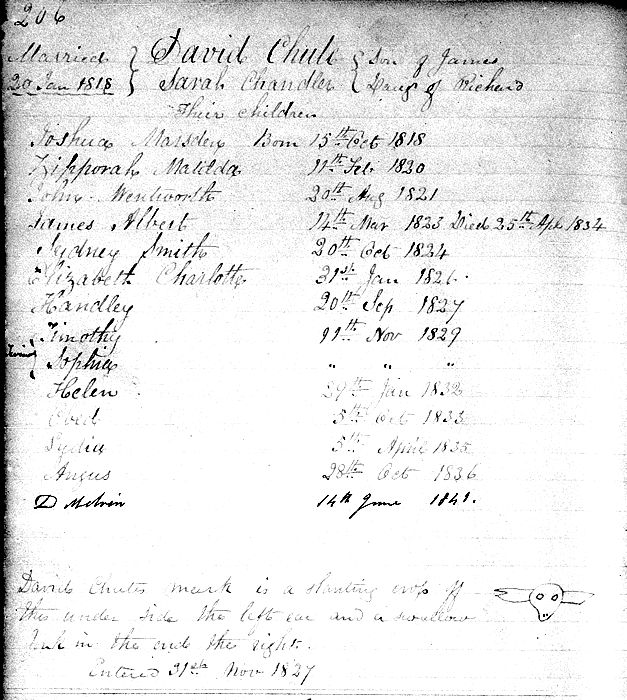 206
Married } David Chute { Son of James
20 Jan 1818 } Sarah Chandler { Daug of Richard
Their children
Joshua Marsden Born 15th Oct 1818
Zipporah Matilda 11th Feb 1820
John Wentworth 20th Aug 1821
James Albert 14th Mar 1823 Died 25th Apl 1834
Sydney Smith 20th Oct 1824
Elizabeth Charlotte 31st Jan 1826
Handley 20th Sep 1827
Timothy 11th Nov 1829
Twins { Sophia " " "
Helen 29th Jan 1832
Obed 5th Oct 1833
Lydia 5th April 1835
Angus 28th Oct 1836
D Melvin 14th June 1841.
David Chutes mark is a slanting crop off
the under side the left ear and a swallow
in the end the right.
Entered 31st Nov 1827